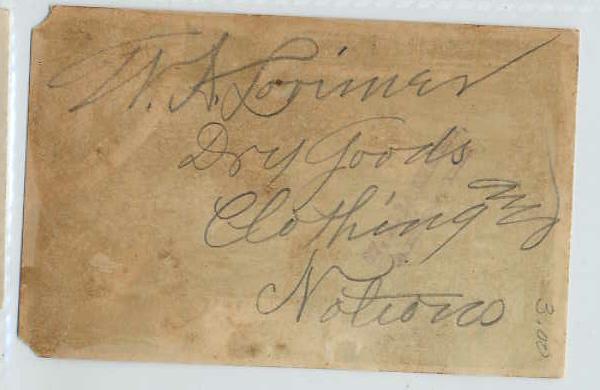 W. A. Lorimer
Dry Goods
Clothing and
Notions
3.00